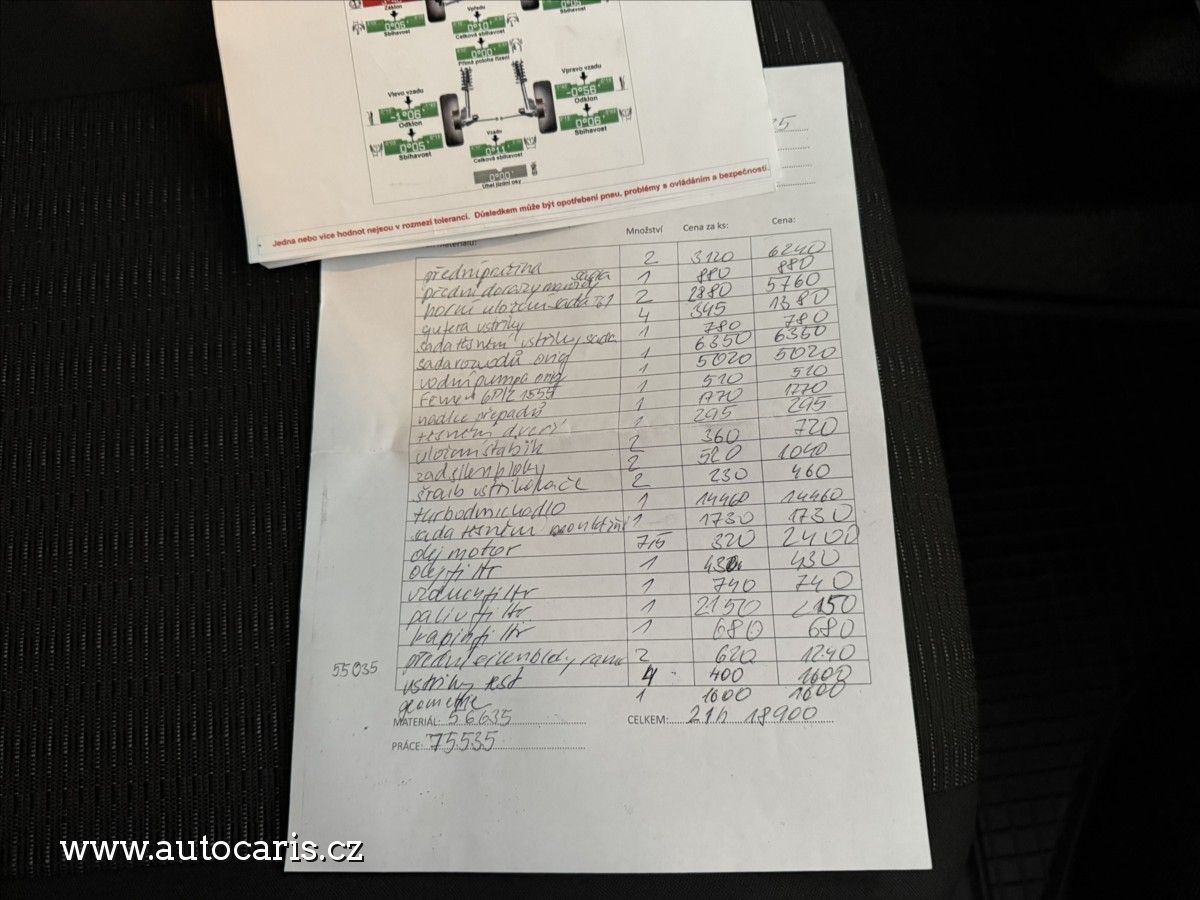 Záklon
0°06'
Sbíhavost
Vpředu
0°10'
Celková sbíhavost
0°00'
Přímá poloha řízení
Sbíhavost
Vlevo vzadu
-1°06'
Odklon
0°05'
Sbíhavost
Vzadu
0°11'
Celková sbíhavost
0°00'
Úhel jízdní osy
Vpravo vzadu
-0°58'
Odklon
0°06'
Sbíhavost
Jedna nebo více hodnot nejsou v rozmezí tolerancí. Důsledkem může být opotřebení pneu, problémy s ovládáním a bezpečností.
materiálu: Množství Cena za ks: Cena:
přední pružina 2 3120 6240
přední dorazy manžety sada 1 880 880
horní uložení sada 2 2880 5760
gufera vstřiky 4 345 1380
sada těsnění vstřiky sada 1 780 780
sada rozvodů orig 1 6350 6350
vodní pumpa orig 1 5020 5020
řemen 6PK1555 1 520 520
hadice přepadů 1 1770 1770
těsnění dveří 1 295 295
uložení stabik 2 360 720
zad silenbloky 2 520 1040
šroub vstřikovače 2 230 460
turbodmichadlo 1 14460 14460
sada těsnění 1 1730 1730
olej motor 7,5 320 2400
olej filtr 1 430 430
vzduch filtr 1 740 740
paliv filtr 1 2150 2150
kabin filtr 1 680 680
přední silenbloky 2 620 1240
vstřiky test 4 400 1600
geometrie 1 1600 1600
55035
MATERIÁL: 56635 CELKEM: 21h 18900
PRÁCE: 75535
www.autocaris.cz